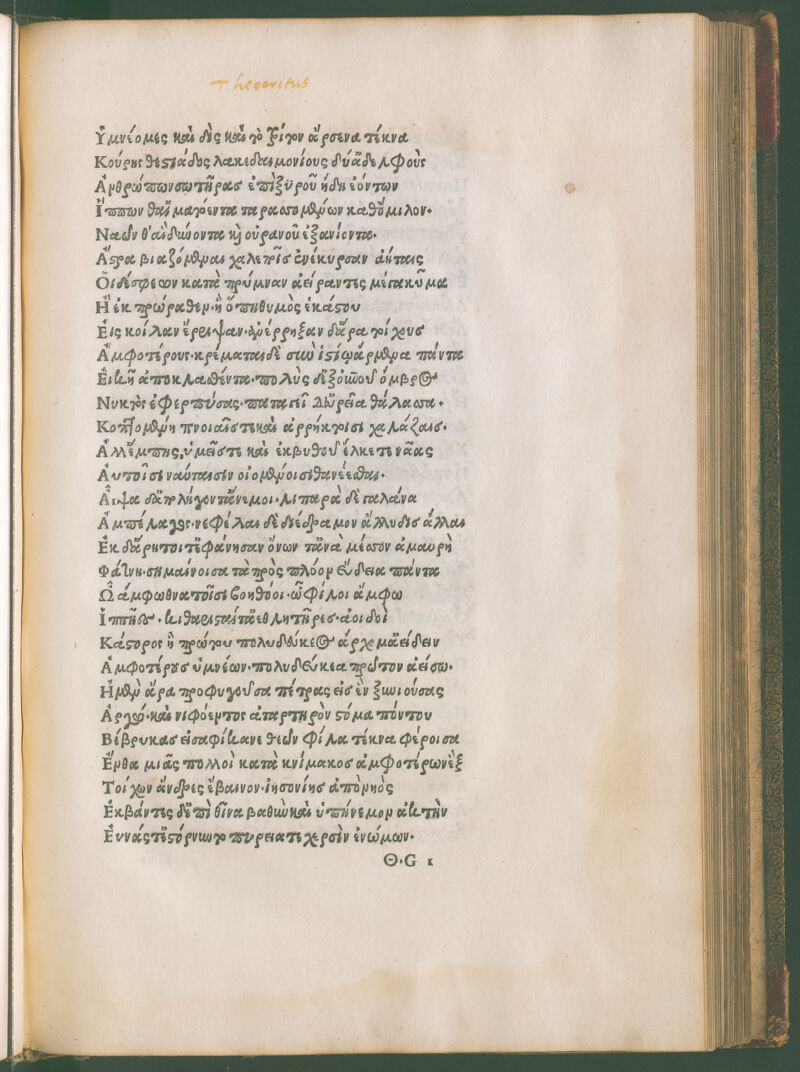 Theocritus
Ὑμνέομες καὶ δὶς καὶ τὸ τρίτον ἄρσενα τέκνα
Κούρης θεστιάδος λακεδαιμονίους δύ ἀδελφοὺς
Ἀνθρώπων σωτῆρας ἐπὶ ξυροῦ ἤδη ἐόντων
Ἵππων θ' αἱματόεντα ταρασσομένων καθ' ὅμιλον·
Ναῶν θ' αἳ δύνοντα καὶ οὐρανοῦ ἐξανίοντα·
Ἄστρα βιαζόμεναι χαλεποῖς ἐνέκυρσαν ἀήταις
Οἱ δέ σφεων κατὰ πρύμναν ἀείραντες μέγα κῦμα
Ἢ ἐκ πρώραθεν· ἢ ὅπη θυμὸς ἑκάστου
Εἰς κοίλαν ἔρριψαν· ἀνέρρηξαν δ' ἄρα τοίχους
Ἀμφοτέρους· κρέματαί δὲ σὺν ἱστίῳ ἄρμενα πάντα
Εἰκῆ ἀποκλασθέντα· πολὺς δ' ἐξ οὐνοῦ ὄμβρος
Νυκτὸς ἐφερπύσας· παταγεῖ δ' εὐρεῖα θάλασσα·
Κοπτομένη πνοιαῖς τε καὶ ἀρρήκτοισι χαλάζαις·
Ἀλλ' ἔμπης, ὑμεῖς τε καὶ ἐκ βυθοῦ ἕλκετε νᾶας
Αὐτοῖσι ναύταισιν οἰομένοισι θανέεσθαι·
Αἶψα δ' ἀπολήγοντ' ἄνεμοι· λιπαρὰ δὲ γαλάνα
Ἀμπέλαγος· νεφέλαι δὲ διέδραμον ἄλλυδις ἄλλαι
Ἐκ δ' ἄρκτοι τ' ἐφάνησαν ὄνων τ' ἀνὰ μέσσον ἀμαυρὴ
Φάτνη· σημαίνοισα τὰ πρὸς πλόον εὔδεια πάντα
Ὦ ἄμφω θνατοῖσι βοηθόοι· ὦ φίλοι ἄμφω
Ἱππῆες· κιθαρισταί τ' ἀεθλητῆρες· ἀοιδοὶ
Κάστορος ἢ πρώτου πολυδεύκεος ἄρχομ' ἀείδειν
Ἀμφοτέρους ὑμνέων· πολυδεύκεα πρῶτον ἀείσω·
Ἡ μὲν ἄρα προφυγοῦσα πέτρας εἰς ἓν ξυνιούσας
Ἀργὼ· καὶ νιφόεντος ἀταρτηρὸν στόμα πόντου
Βέβρυκας εἰσαφίκανε θεῶν φίλα τέκνα φέροισα
Ἔνθα μιᾶς πολλοὶ κατὰ κλίμακος ἀμφοτέρων ἐξ
Τοίχων ἄνδρες ἔβαινον· ἰησονίης ἀπὸ νηὸς
Ἐκβάντες δ' ἐπὶ θῖνα βαθὺν καὶ ὑπήνεμον ἀκτὴν
Εὐνάς τ' ἐστόρνυντο πυρειά τε χερσὶν ἐνώμων·
Θ·G 1